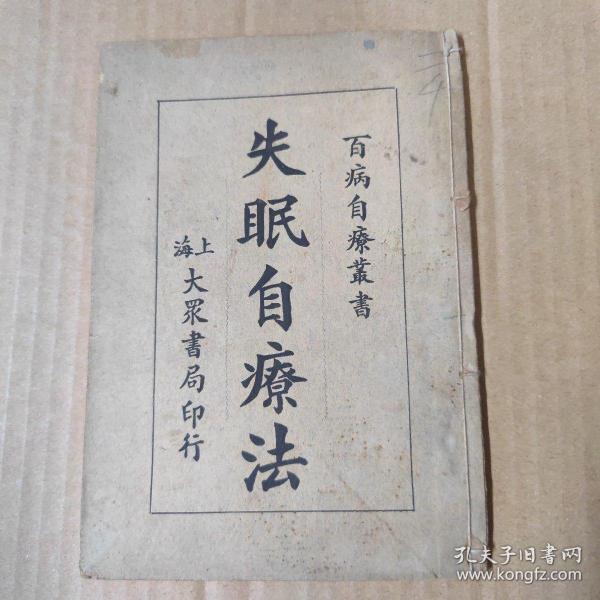 百病自療叢書
失眠自療法
上海
大眾書局印行
孔夫子旧书网
www.kongfz.com